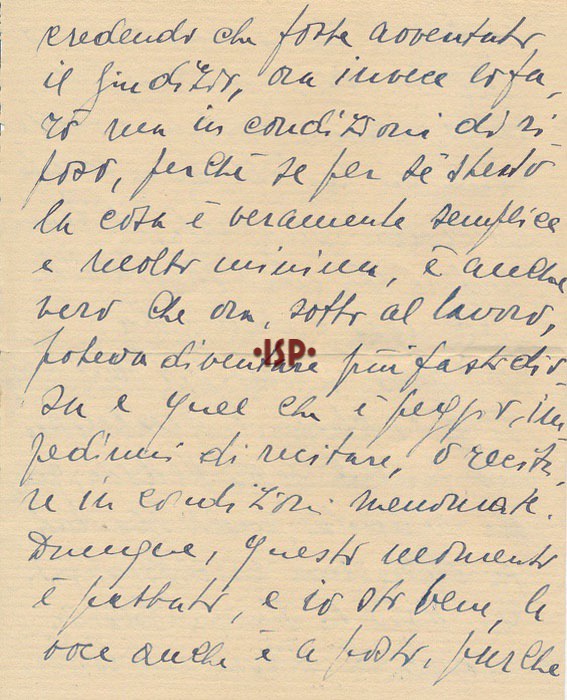 credendo che fosse avventato
il giudizio, ora invece lo fa,
rò ma in condizioni di ri
poso, perchè se per sè stesso
la cosa è veramente semplice
e molto minima, è anche
vero che ora, sotto al lavoro,
poteva diventare più fastidio
sa e quel che è peggio, im
pedirmi di recitare, o recita,
re in condizioni menomate.
Dunque, questo momento
è passato, e io sto bene, la
voce anche è a posto, purchè
·ISP·